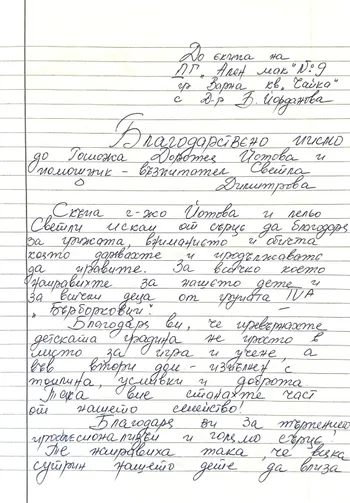 До екипа на
ДГ „Ален мак" №9
гр Варна кв. „Чайка"
с Д-р Б. Йорданова
Благодарствено писмо
до Госпожа Доротея Йотова и
помощник - възпитател Светла
Димитрова
Скъпа г-жо Йотова и лельо
Светли искам от сърце да благодаря
за грижата, вниманието и обичта
която дарявахте и продължавате
да правите. За всичко което
направихте за нашето дете и
за всички деца от група IVА
„Бърборковци".
Благодаря ви, че превърнахте
детската градина не просто в
място за игра и учене, а
във втори дом - изпълнен с
топлина, усмивки и доброта
Така вие станахте част
от нашето семейство!
Благодаря ви за търпението
професионализъм и голямо сърце!
Те направиха така, че всяка
сутрин нашето дете да влиза